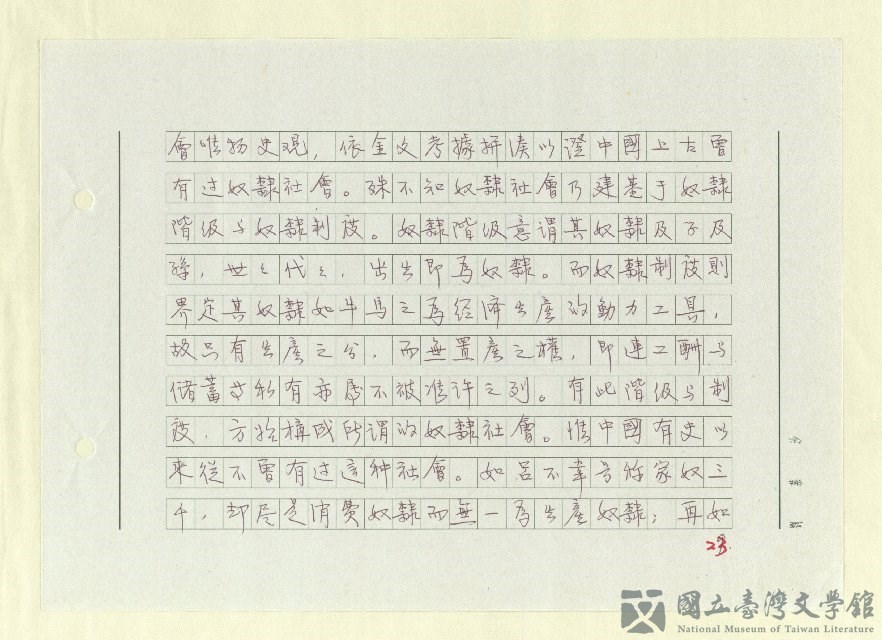 會唯物史观，依金文考據拼湊以證中國上古曾
有过奴隸社會。殊不知奴隸社會乃建基于奴隸
階级与奴隸制度。奴隸階级意谓其奴隸及子及
孫，世々代々，出生即為奴隸。而奴隸制度則
界定其奴隸如牛馬之為经济生產的動力工具，
故只有生產之分，而無置產之權，即連工酬与
儲蓄等私有亦属不被准许之列。有此階级与制
度，方始構成所谓的奴隸社會。惟中國有史以
來從不曾有过這种社會。如呂不韋号称家奴三
千，却尽是消費奴隸而無一為生產奴隸；再如
23.
國立臺灣文學館
National Museum of Taiwan Literature